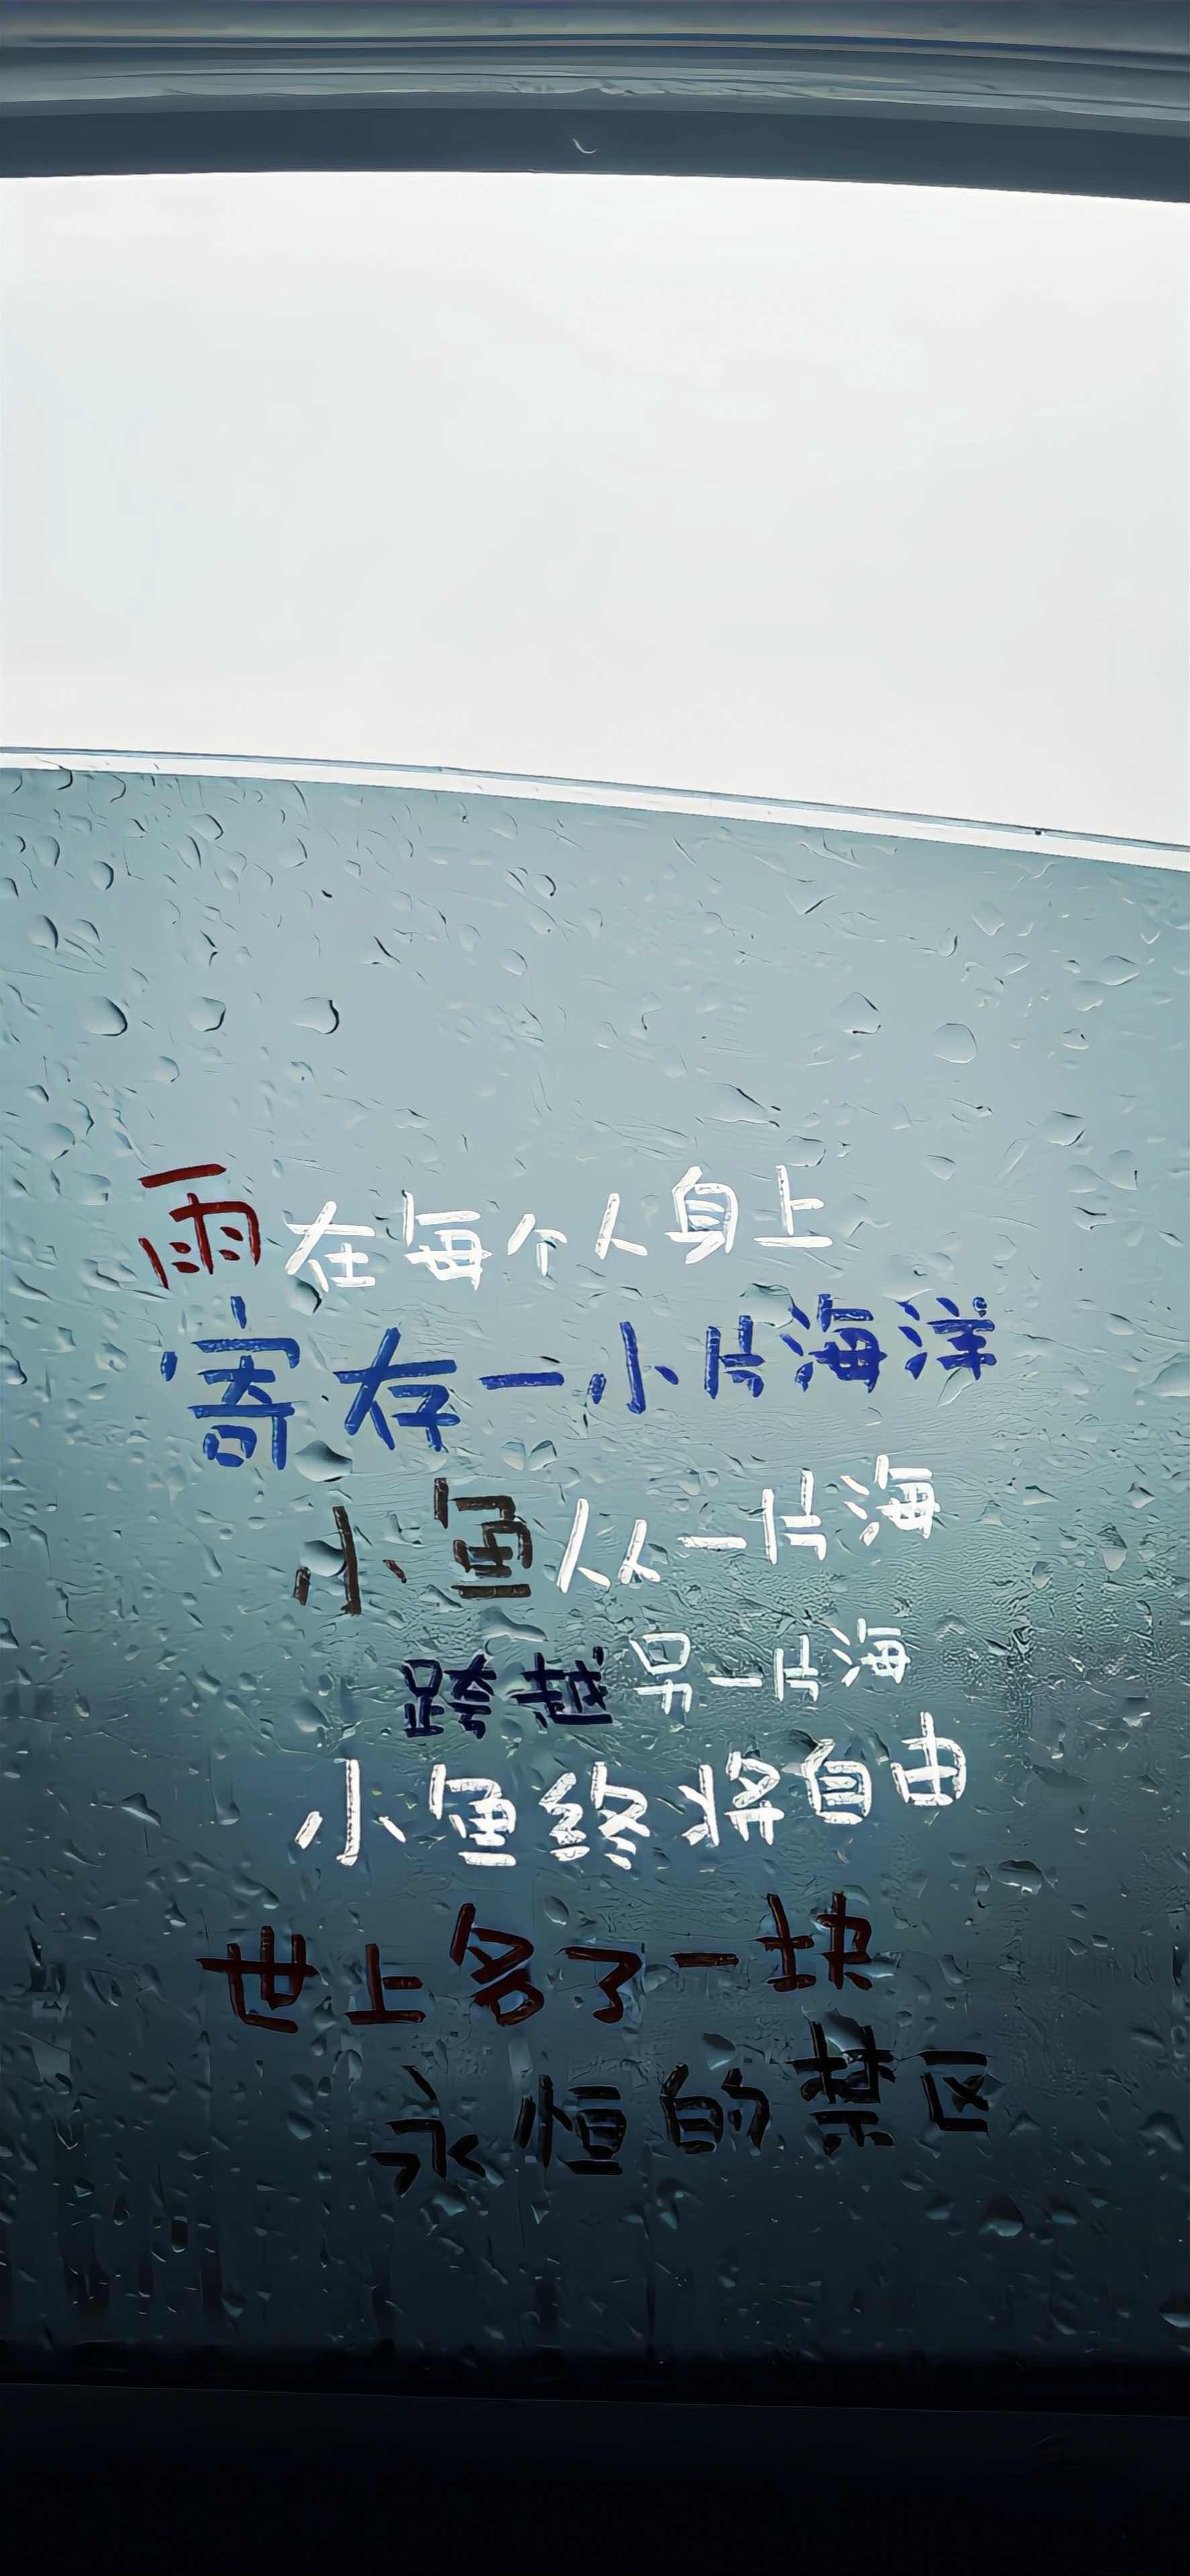 雨在每个人身上
寄存一小片海洋
小鱼从一片海
跨越另一片海
小鱼终将自由
世上多了一块
永恒的禁区